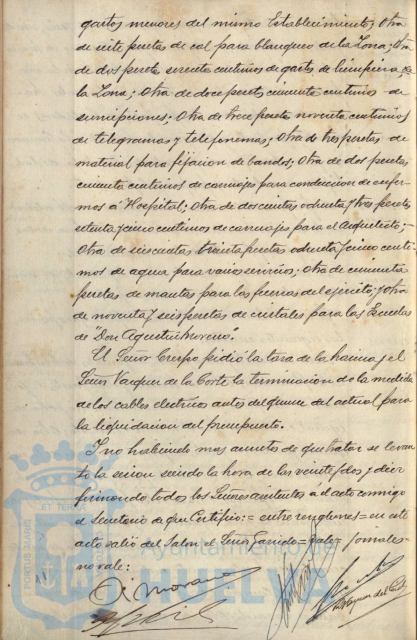 gastos menores del mismo Establecimiento; Otra
de siete pesetas de cal para blanqueo de la Zona; Otra
de dos pesetas sesenta centimos de gastos de limpieza de
la Zona; Otra de doce pesetas cincuenta centimos de
suscripciones; Otra de trece pesetas noventa centimos
de telegramas y telefonemas; Otra de tres pesetas de
material para fijacion de bandos; Otra de dos pesetas
cincuenta centimos de carruajes para conduccion de enfer-
mos á Hospital; Otra de doscientas ochenta y tres pesetas
setenta y cinco centimos de carruajes para el Arquitecto;
Otra de seiscientas treinta pesetas ochenta y cinco centi-
mos de agua para varios servicios; otra de cincuenta
pesetas de mantas para las fuerzas del ejercito; y otra
de noventa y seis pesetas de cristales para las Escuelas
de "Don Agustin Moreno".
El Señor Crespo pidió la tasa de la harina y el
Señor Vazquez de la Corte la terminacion de la medida
de los cables electricos antes del quince del actual para
la liquidacion del presupuesto.
Y no habiendo mas asuntos de que tratar se levan
tó la sesion siendo la hora de las veinte y dos y diez
firmando todos los Señores asistentes á el acto conmigo
el Secretario de que Certifico: = entre renglones = en este
acto salió del Salon el Señor Garrido = vale = jornales
no vale:
ET TERRA
PORTUS MARIS
HUELVA